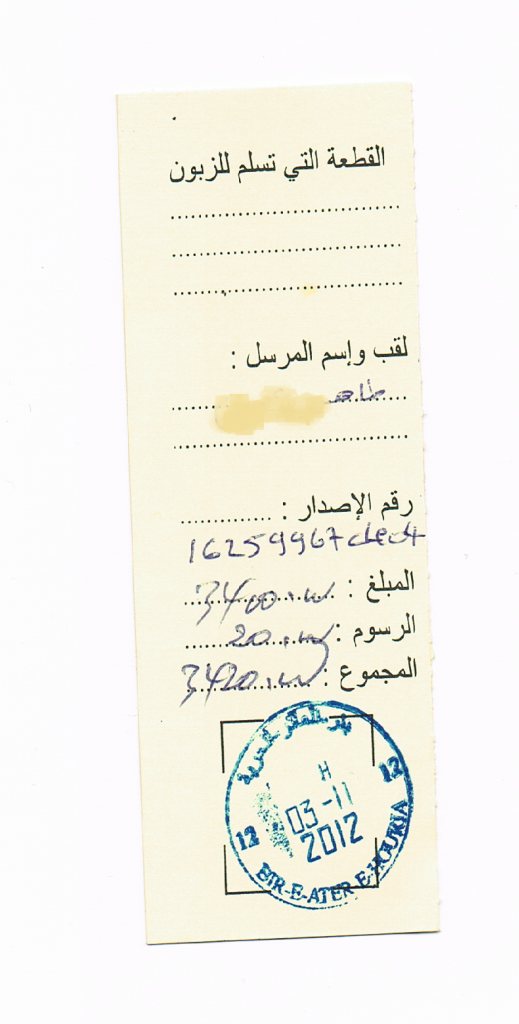 القطعة التي تسلم للزبون
لقب وإسم المرسل :
طاهر
رقم الإصدار :
16259967
المبلغ : 3400.00
الرسوم : 20.00
المجموع : 3420.00
بئر العاتر الحرية
H
12
03-11
12
2012
BIR-E-ATER E-HOURIA